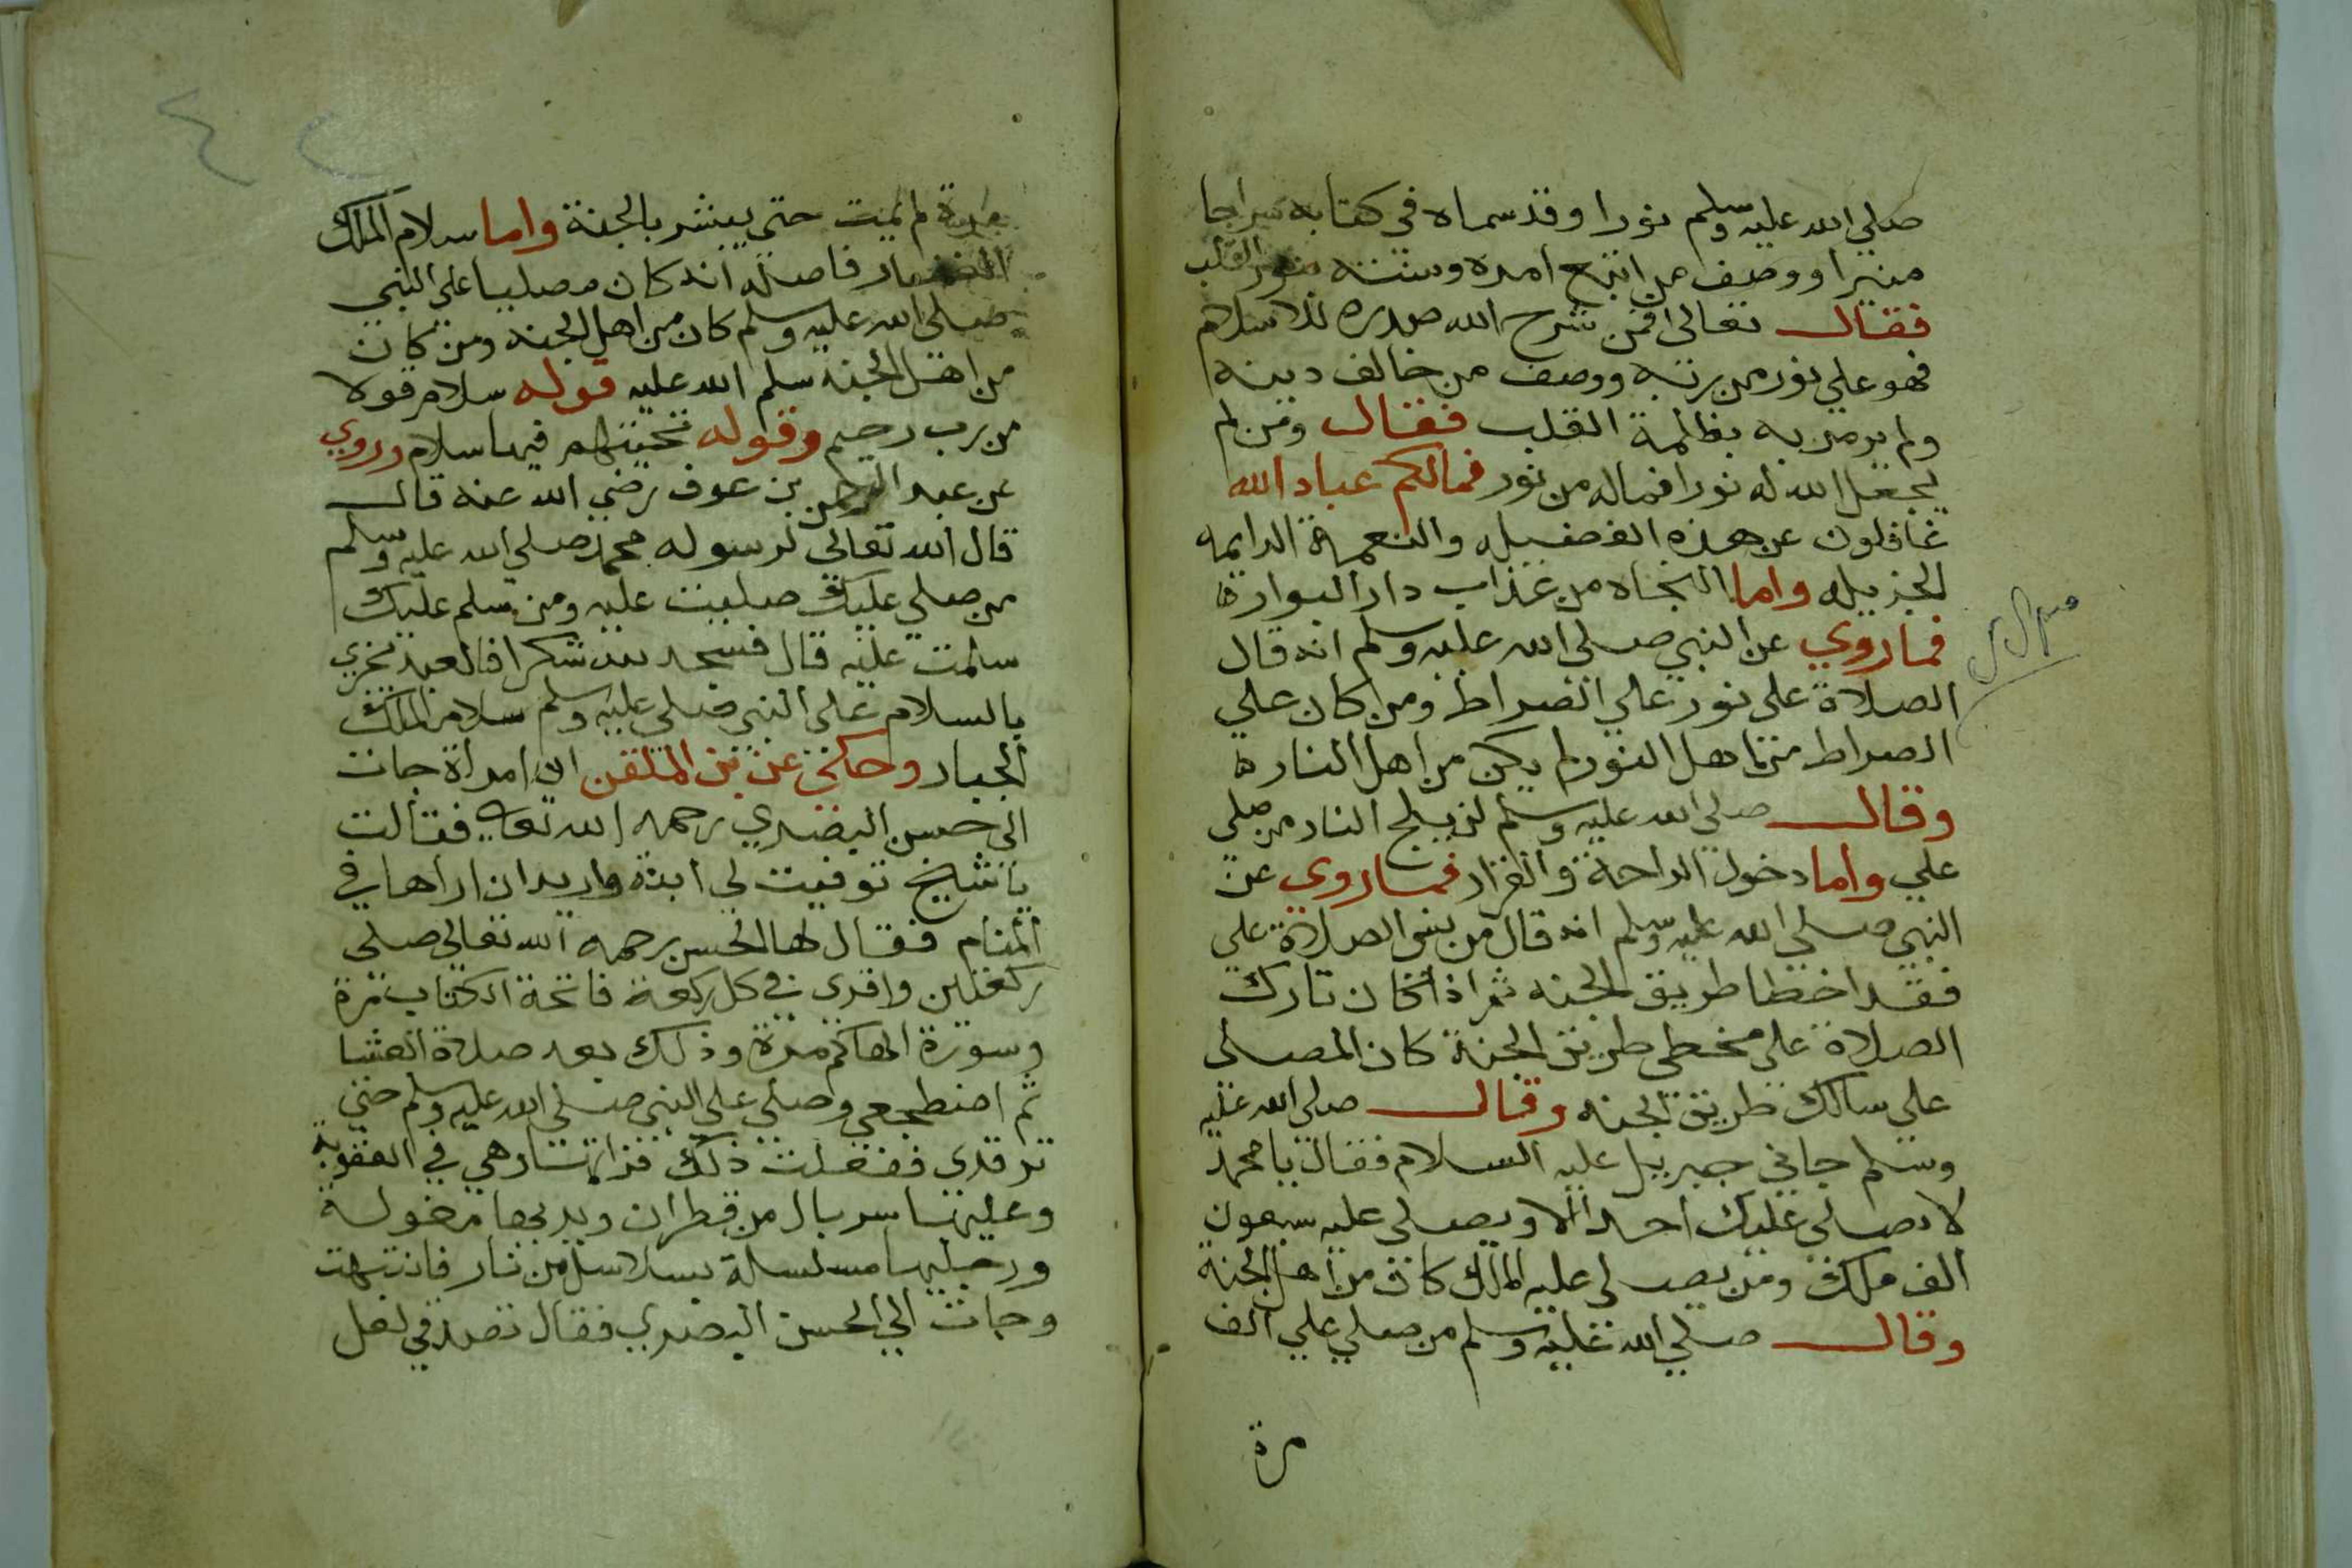 صلي الله عليه وسلم نورا وقد سماه في كتابه سراجا
منيرا ووصف من اتبع امره وسنته بنور القلب
فقال تعالى افمن شرح الله صدره للاسلام
فهو علي نور من ربه ووصف من خالف دينه
ولم يرض به بظلمة القلب فقال ومن لم
يجعل الله له نورا فماله من نور فمالكم عباد الله
غافلون عن هذه الفضيله والنعمة الدايمه
الجزيله واما النجاه من عذاب دار البوار
فما روي عن النبي صلى الله عليه وسلم انه قال
الصلاة على نور علي الصراط ومن كان علي
الصراط من اهل النور لم يكن من اهل النار
وقال صلي الله عليه وسلم لن يلج النار من صلى
علي واما دخول الراحة والقرار فما روي عن
النبي صلي الله عليه وسلم انه قال من نسى الصلاة علي
فقد اخطا طريق الجنه ثم اذا كان تارك
الصلاة على مخطى طريق الجنة كان المصلى
على سالك طريق الجنه وقال صلى الله عليه
وسلم جاني جبريل عليه السلام فقال يا محمد
لا يصلي عليك احد الا ويصلى عليه سبعون
الف ملك ومن يصلى عليه الملك كان من اهل الجنة
وقال صلي الله عليه وسلم من صلي علي الف
مرة
مرة لم يمت حتى يبشر بالجنة واما سلام الملك
فاصله انه كان مصليا على النبي
صلى الله عليه وسلم كان من اهل الجنه ومن كان
من اهل الجنة سلم الله عليه قوله سلام قولا
من رب رحيم وقوله تحيتهم فيها سلام وروي
عن عبد الرحمن بن عوف رضي الله عنه قال
قال الله تعالى لرسوله محمد صلي الله عليه وسلم
من صلي عليك صليت عليه ومن سلم عليك
سلمت عليه قال فسجد لله شكرا فالعبد يجزي
بالسلام على النبي صلى عليه وسلم سلام الملك
الجبار وحكى عن بن الملقن ان امراة جات
الى حسن البصري رحمه الله تعالى فقالت
يا شيخ توفيت لي ابنة واريد ان اراها في
المنام فقال لها الحسن رحمه الله تعالي صلى
ركعتين واقري في كل ركعة فاتحة الكتاب مرة
وسورة الهاكم مرة وذلك بعد صلاة العشا
ثم اضطجعي وصلي على النبي صلى الله عليه وسلم حتي
ترقدى ففعلت ذلك هي في العقوبة
وعليها سربال من قطران ويديها مغولة
ورجليها مسلسلة بسلاسل من نار فانتبهت
وجات الي الحسن البصري فقال تصدقي لعل